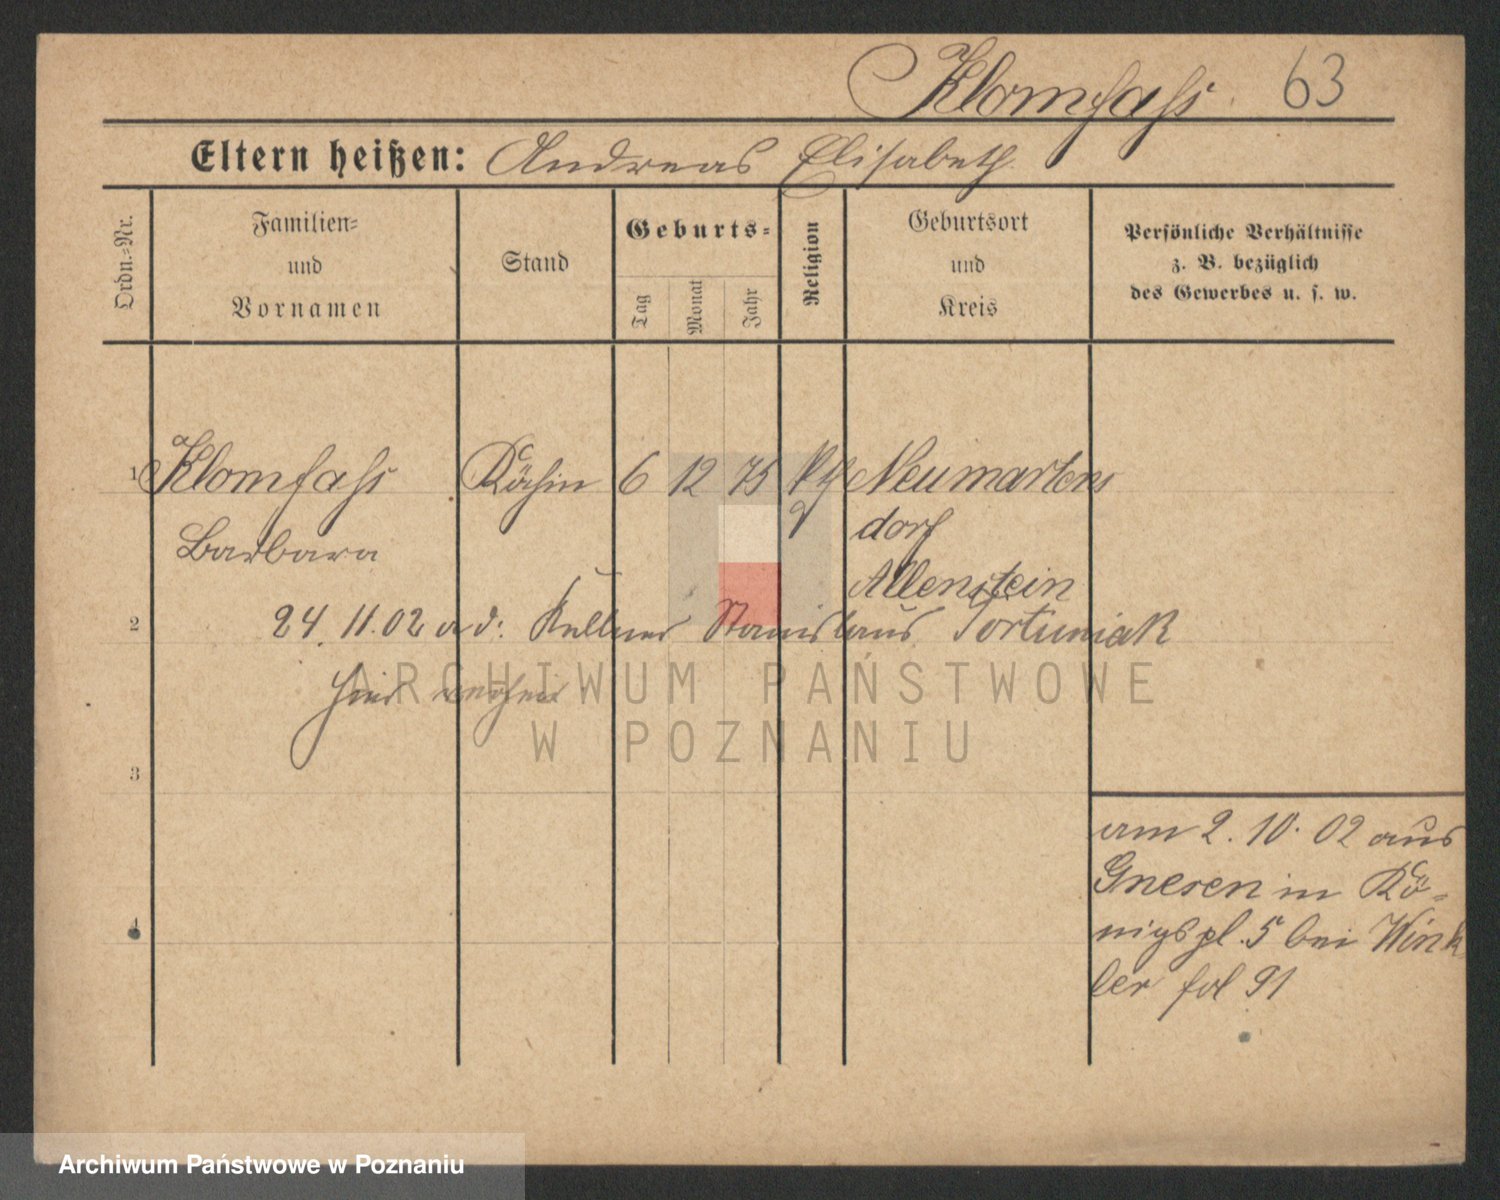 Klomfass 63
Eltern heißen: Andreas Elisabeth
Ordn.=Nr.
Familien=
und
Vornamen
Stand
Geburts=
Tag
Monat
Jahr
Religion
Geburtsort
und
Kreis
Persönliche Verhältnisse
z. B. bezüglich
des Gewerbes u. s. w.
1 Klomfass Köchin 6 12 75 Neumartens
Barbara dorf
Allenstein
2 24. 11. 02 a d: Kellner Stanislaus Fortuniak
hier
ARCHIWUM PAŃSTWOWE
W POZNANIU
3
am 2. 10. 02 aus
Gnesen in Kö-
nigspl. 5 bei Wink
ler fol 91
4
Archiwum Państwowe w Poznaniu